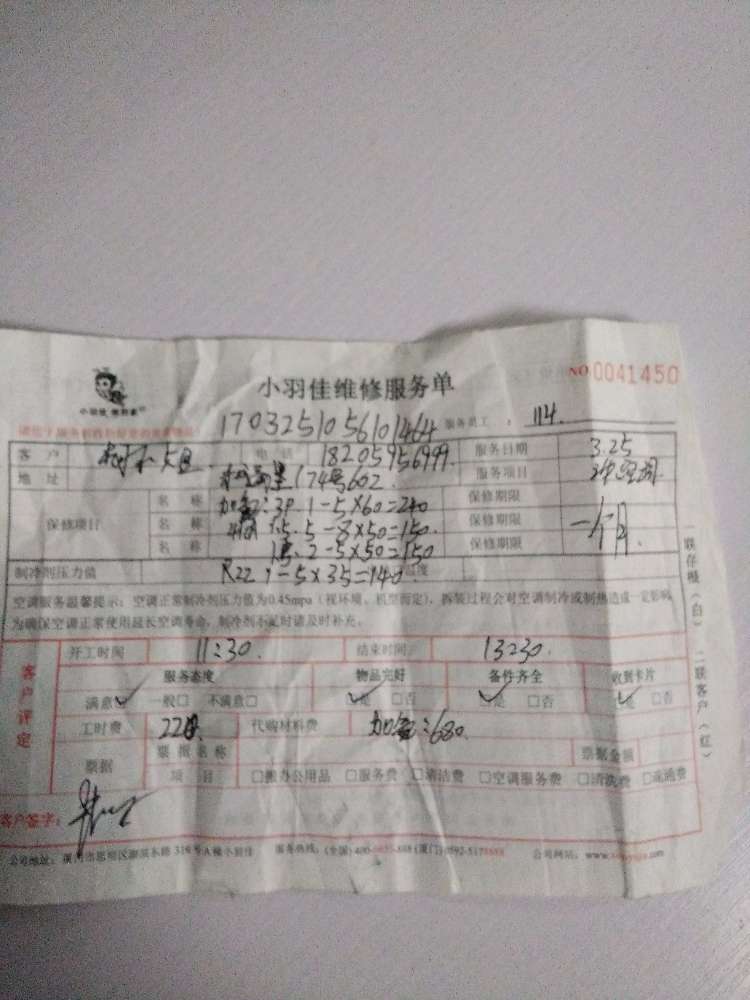 小羽佳维修服务单
NO 0041450
小羽佳
1703251056101464 服务员工: 114.
客户 电话 18205956999. 服务日期 3.25
地址 174号602 服务项目
名称 加氟:3P.1-5×60=240 保修期限
保修项目 名称 5-8×50=150. 保修期限 一个月.
名称 2-5×50=150 保修期限
制冷剂压力值 R22 1-5×35=140.
空调服务温馨提示:空调正常制冷剂压力值为0.45mpa(视环境、机型而定),拆装过程会对空调制冷或制热造成一定影响
为确保空调正常使用延长空调寿命,制冷剂不足时请及时补充。
开工时间 11:30. 结束时间 13:30.
客户评定
服务态度 物品完好 备件齐全 收到卡片
满意☑ 一般□ 不满意□ ☑是 □否 ☑是 □否 ☑是 □否
工时费 代购材料费 加氟:680.
票据 票据名称 票据金额
项目 □搬办公用品 □服务费 □清洁费 □空调服务费 □清洗费 □疏通费
客户签字:
公司地址: 服务热线:(全国)400- (厦门)0592- 公司网站:
一联存根(白) 二联客户(红)